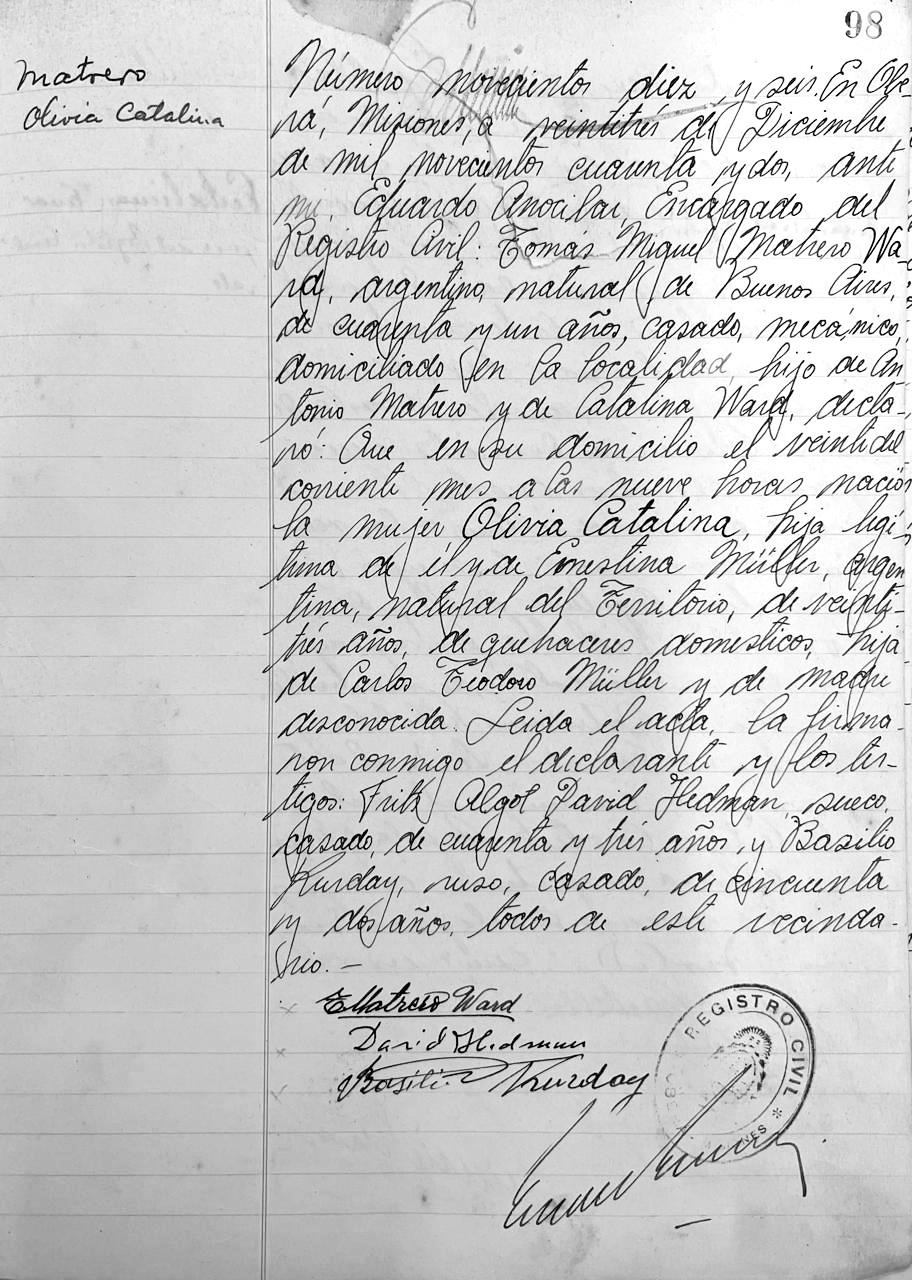 98
Matrero
Olivia Catalina
Número novecientos diez y seis. En Obe-
rá, Misiones, a veintitrés de Diciembre
de mil novecientos cuarenta y dos, ante
mi, Eduardo Encargado del
Registro Civil: Tomás Miguel Matrero Wa-
rd, argentino, natural de Buenos Aires,
de cuarenta y un años, casado, mecánico,
domiciliado en la localidad, hijo de An
tonio Matrero y de Catalina Ward, decla-
ró: Que en su domicilio el veinte del
corriente mes a las nueve horas nació
la mujer Olivia Catalina, hija legí-
tima de él y de Ernestina Müller, argen
tina, natural del Territorio, de veinti-
trés años, de quehaceres domesticos, hija
de Carlos Teodoro Müller y de madre
desconocida. Leida el acta, la firma-
ron conmigo el declarante y los tes-
tigos: Fritz Algot David Hedman, sueco,
casado, de cuarenta y tres años, y Basilio
Kurday, ruso, casado, de cincuenta
y dos años, todos de este vecinda-
rio. —
Matrero Ward
David Hedman
Basilio Kurday
REGISTRO CIVIL *